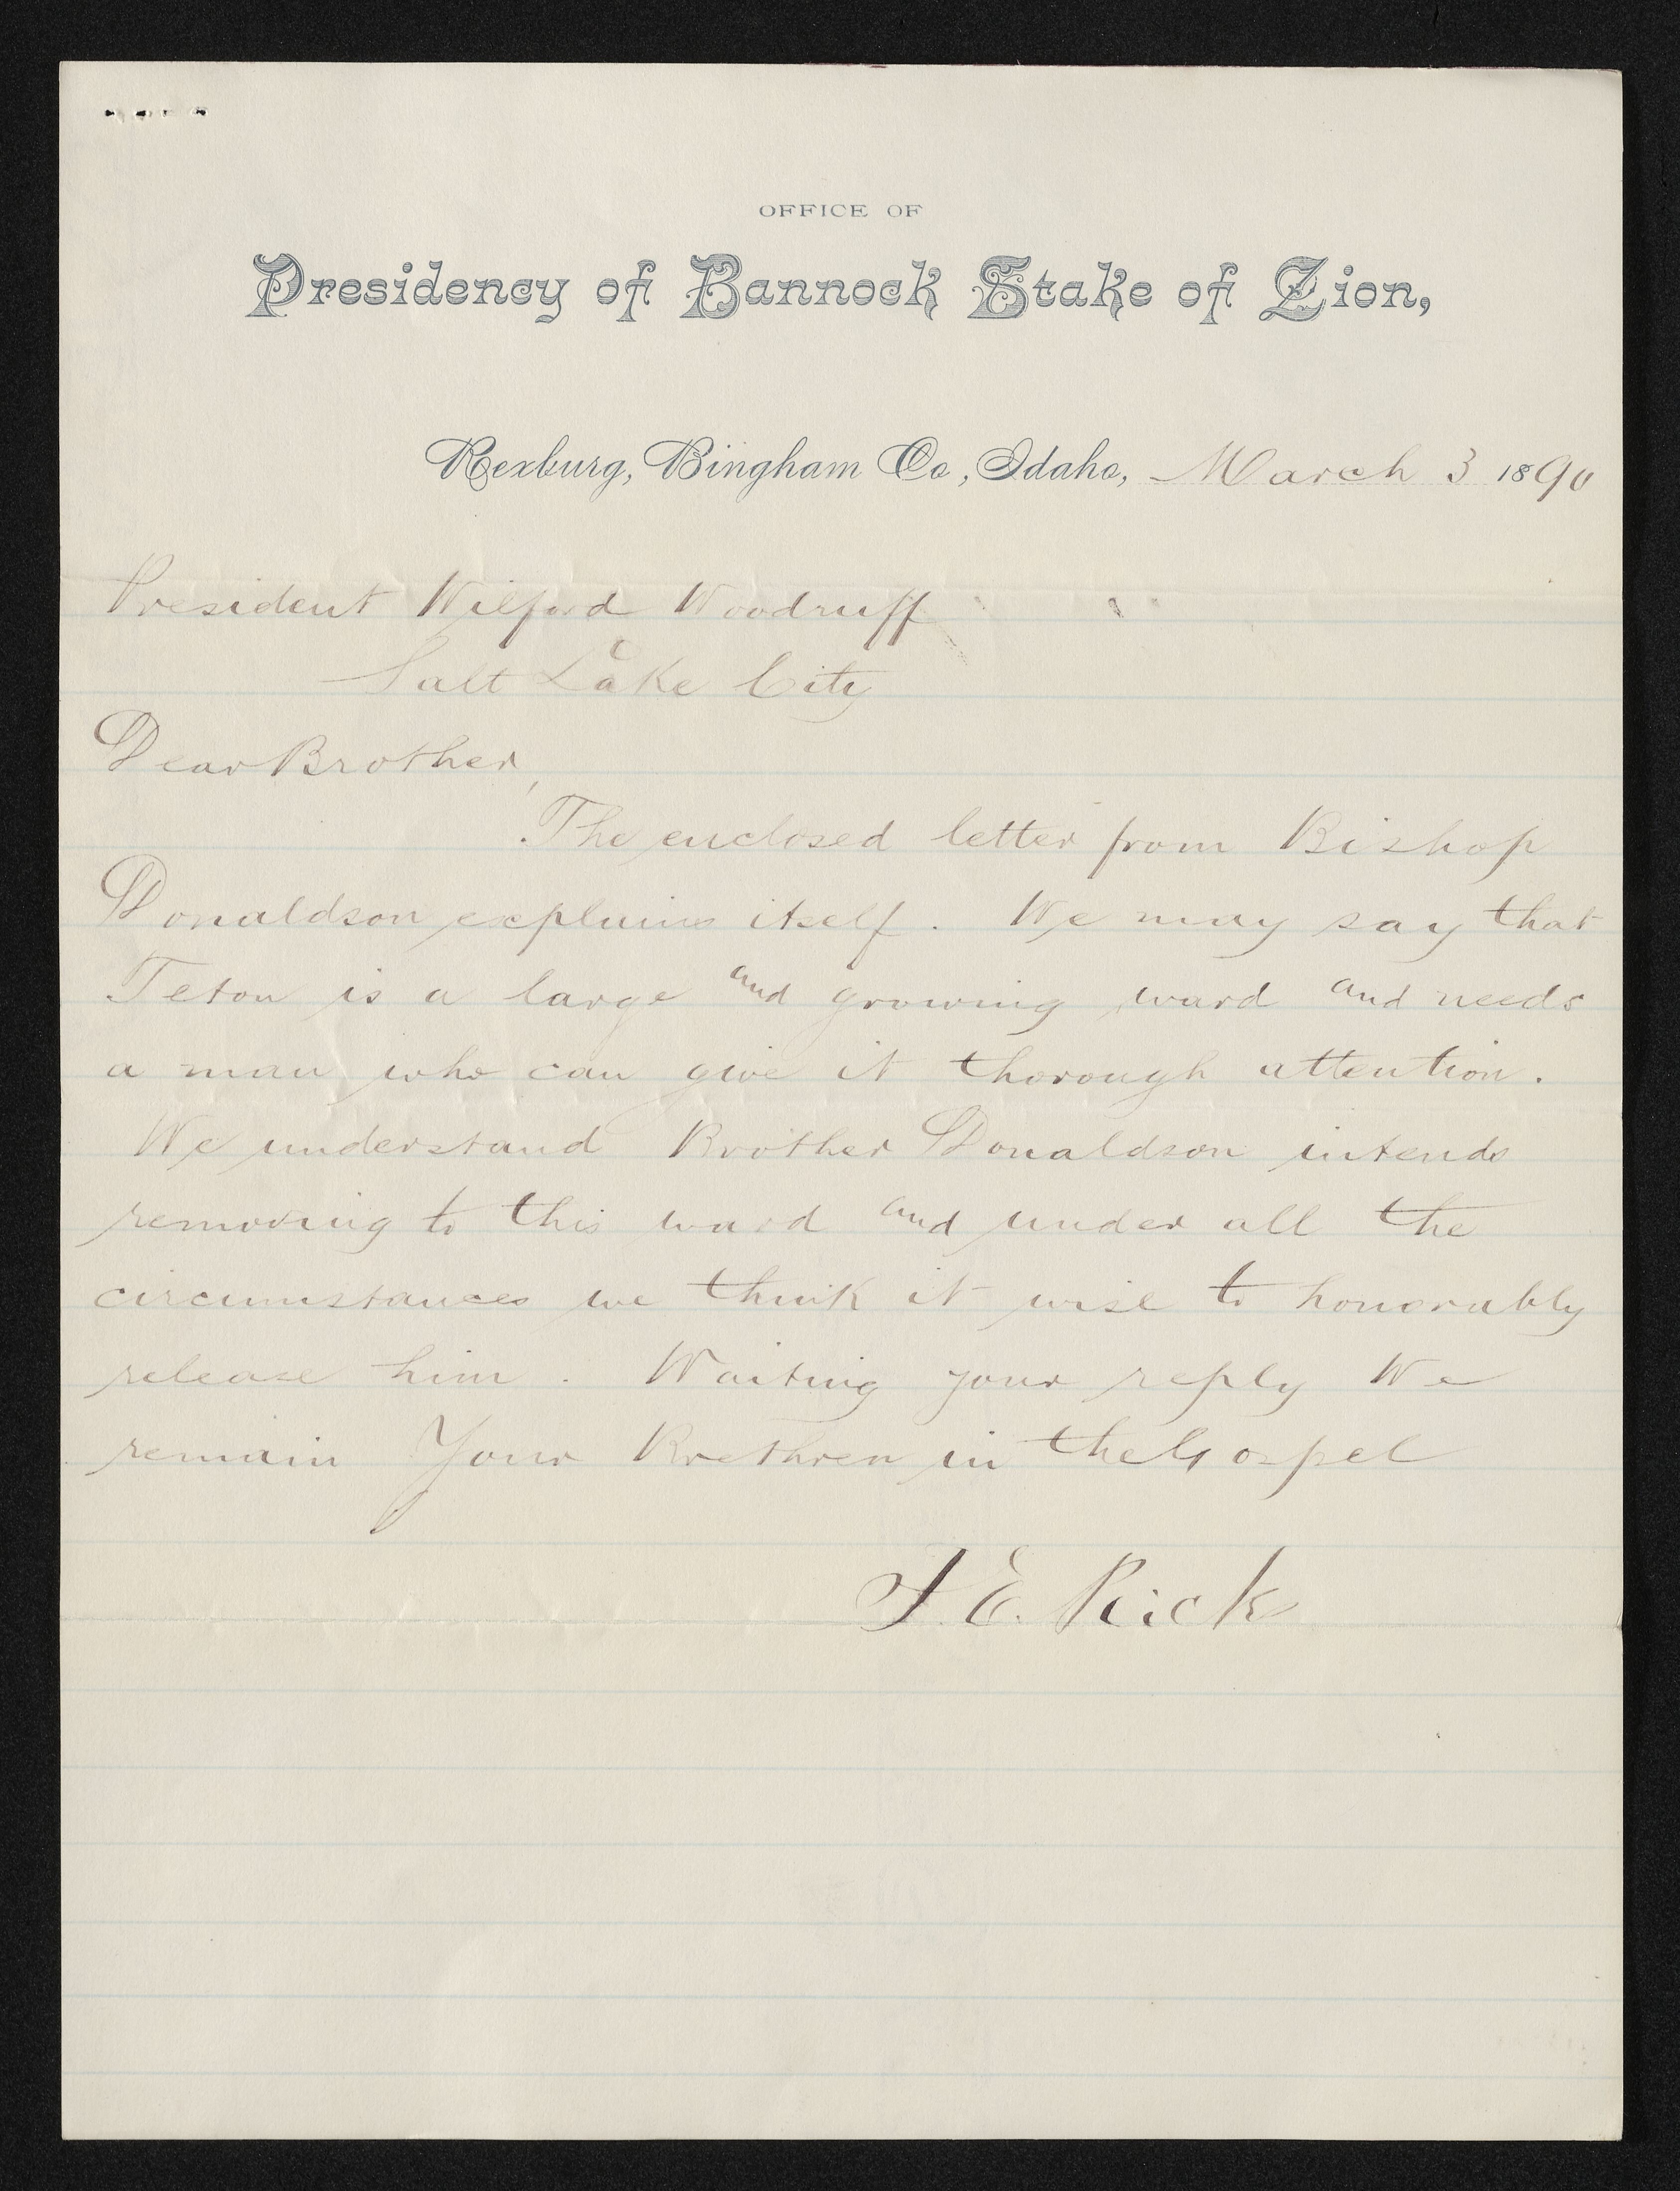 OFFICE OF
Presidency of Bannock Stake of Zion,
Rexburg, Bingham Co, Idaho, March 3 1890
President Wilford Woodruff
Salt Lake City
Dear Brother,
The enclosed letter from Bishop
Donaldson explains itself. We may say that
Teton is a large and growing ward and needs
a man who can give it thorough attention.
We understand Brother Donaldson intends
removing to this ward and under all the
circumstances we think it wise to honorably
release him. Waiting your reply We
remain Your Brethren in the Gospel
T. E. Rick